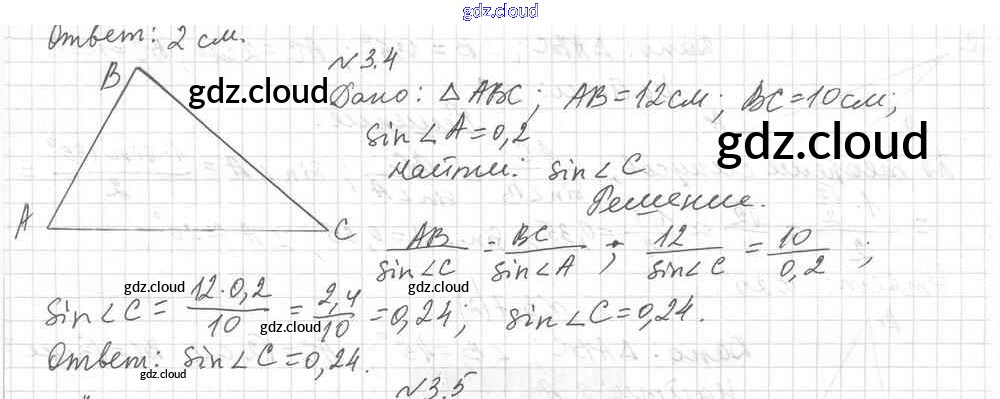 gdz.cloud
Ответ: 2 см.
№3.4
B
gdz.cloud
Дано: △ABC; AB=12см; BC=10см;
sin∠A=0,2
gdz.cloud
Найти: sin∠C
Решение.
A
C
AB/sin∠C = BC/sin∠A; 12/sin∠C = 10/0,2;
gdz.cloud
gdz.cloud
sin∠C = 12·0,2/10 = 2,4/10 = 0,24; sin∠C=0,24.
gdz.cloud
Ответ: sin∠C=0,24.
gdz.cloud
№3.5